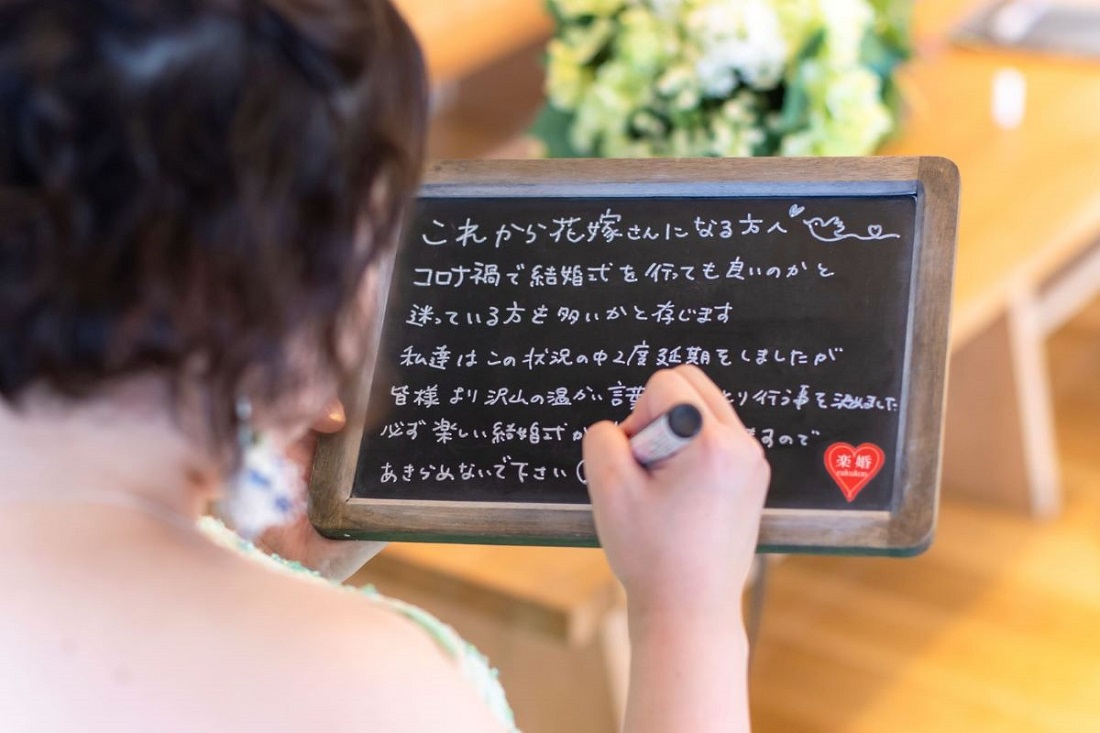 これから花嫁さんになる方へ
コロナ禍で結婚式を行っても良いのかと
迷っている方も多いかと存じます
私達はこの状況の中2度延期をしましたが
皆様より沢山の温かい言葉 行う事を決めました
必ず楽しい結婚式が すので
あきらめないで下さい
楽婚
rakukon